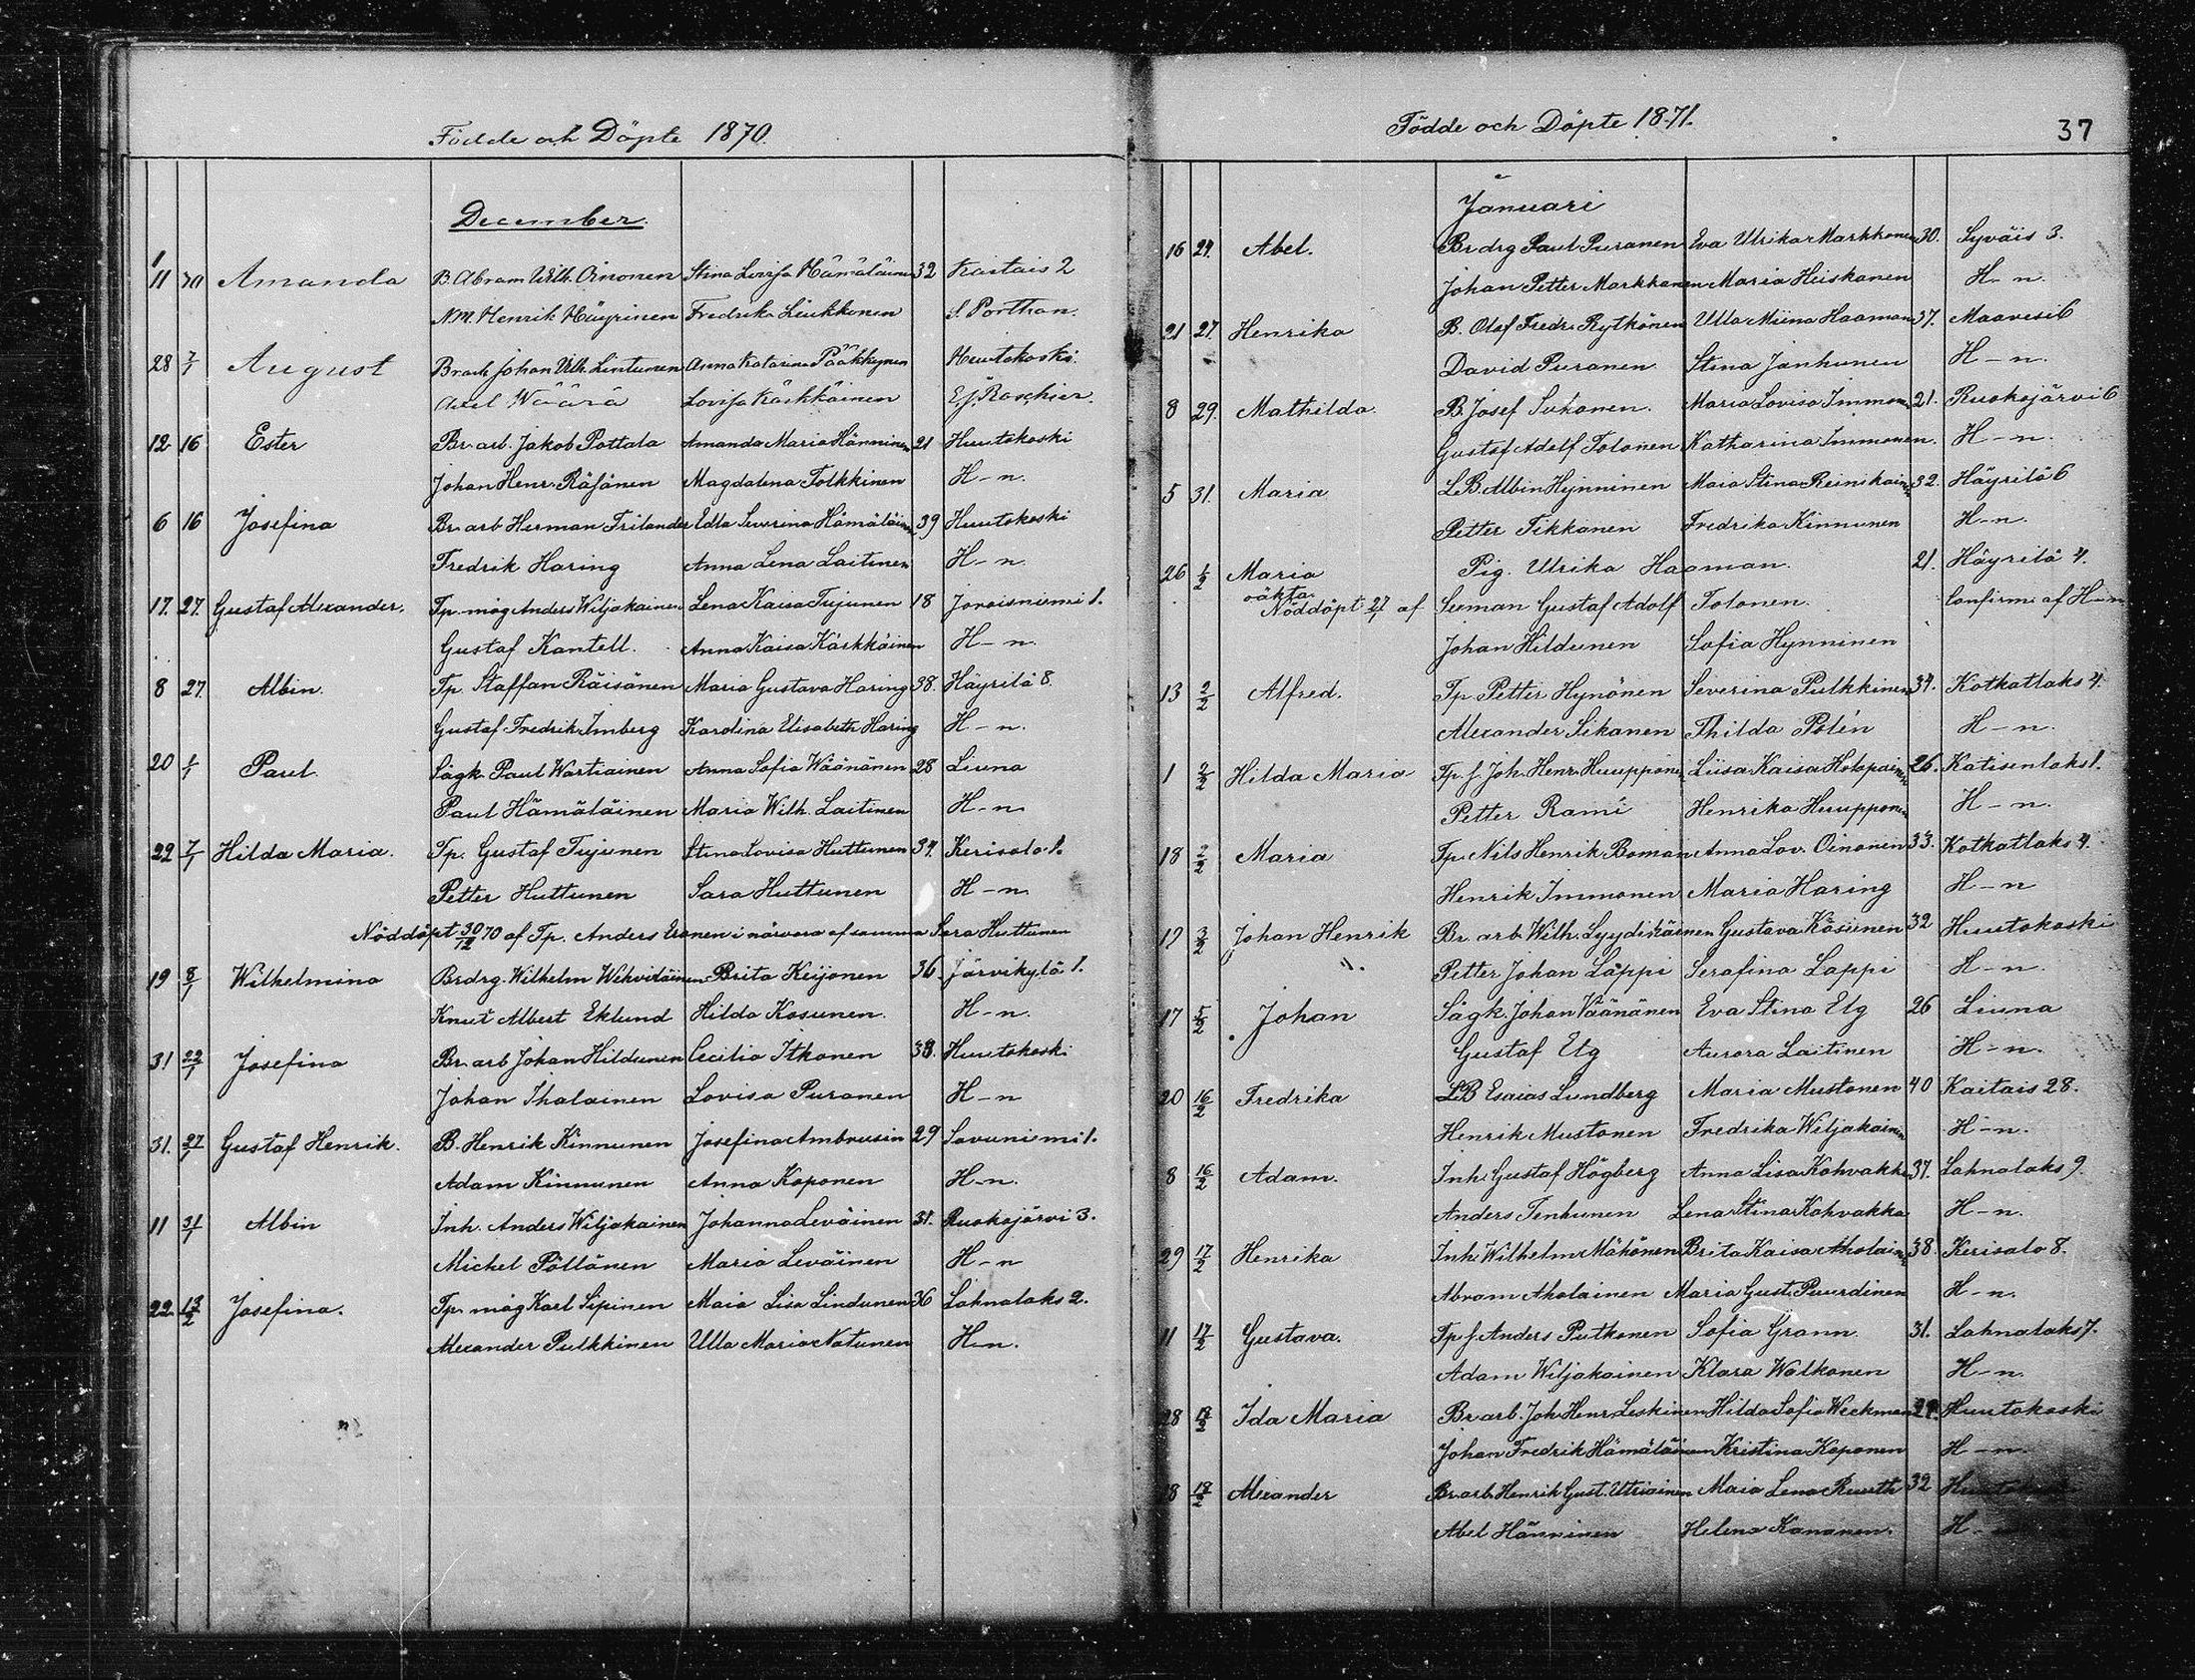 Födde och Döpte 1870.
December.
11 Amanda B. Abram Wilh. Oinonen Stina Lovisa Hämäläinen 32 Kaitais 2
N.M. Henrik Häyrinen Fredrika Liukkonen S. Porthan.
28 7/1 August Br. arb Johan Wilh. Lintunen Anna Katarina Pääkkynen Huutokoski.
Axel Wäärä Lovisa Käskkäinen E.J. Roschier.
12 16 Ester Br. arb. Jakob Pottala Amanda Maria Hänninen 21 Huutokoski
Johan Henr. Räsänen Magdalena Tolkkinen H-n.
6 16 Josefina Br. arb Herman Frilander Edla Severina Hämäläinen 39 Huutokoski
Fredrik Haring Anna Lena Laitinen H-n.
17. 27. Gustaf Alexander. Tp. måg Anders Wiljakainen Lena Kaisa Tujunen 18 Joroisniemi 1.
Gustaf Kantell. Anna Kaisa Käskkäinen H-n.
8 27. Albin. Tp. Staffan Räisänen Maria Gustava Haring 38. Häyrilä 8.
Gustaf Fredrik Imberg Karolina Elisabeth Haring H-n.
20 1/1 Paul. Sågk. Paul Wartiainen Anna Sofia Wäänänen 28 Liuna
Paul Hämäläinen Maria Wilh. Laitinen H-n
22 7/1 Hilda Maria. Tp. Gustaf Tujunen Stina Lovisa Huttunen 34. Kerisalo 1.
Petter Huttunen Sara Huttunen H-n
Nöddöpt 30/12 70 af Tp. Anders Eronen i närvaro af samma Sara Huttunen
19 8/1 Wilhelmina Brdrg. Wilhelm Wehviläinen Brita Keijonen 36 Järvikylä 1.
Knut Albert Eklund Hilda Kosunen. H-n.
31 22/1 Josefina Br. arb Johan Hildunen Cecilia Itkonen 38. Huutokoski
Johan Ihalainen Lovisa Puranen H-n
31. 27/1 Gustaf Henrik. B. Henrik Kinnunen Josefina Ambrusin 29 Savuniemi 1.
Adam Kinnunen Anna Koponen H-n.
11 31/1 Albin Inh. Anders Wiljakainen Johanna Leväinen 31. Ruokojärvi 3.
Michel Pöllänen Maria Leväinen H-n
22. 12/2 Josefina. Tp. måg Karl Sipinen Maia Lisa Lindunen 36 Lahnalaks 2.
Alexander Pulkkinen Ulla Maria Natunen H-n.
Födde och Döpte 1871.
37
Januari
16 24. Abel. Brdrg Paul Puranen Eva Ulrika Markkanen 30. Syväis 3.
Johan Petter Markkanen Maria Heiskanen H-n.
21 27. Henrika B. Olof Fredr. Rytkönen Ulla Miina Haaman 37. Maavesi 6
David Puranen Stina Janhunen H-n.
8 29. Mathilda B. Josef Suhonen. Maria Lovisa Immonen 21. Ruokojärvi 6
Gustaf Adolf Tolonen Katharina Immonen. H-n.
5 31. Maria LB. Albin Hynninen Maia Stina Reinikainen 32. Häyrilä 6
Petter Tikkanen Fredrika Kinnunen H-n.
26 1/2 Maria Pig. Ulrika Haaman. 21. Häyrilä 4.
oäkta.
Nöddöpt 27/1 af Seeman Gustaf Adolf Tolonen. Confirm. af H-n
Johan Hildunen Sofia Hynninen
13 2/2 Alfred. Tp. Petter Hynönen Severina Pulkkinen 34. Kotkatlaks 4.
Alexander Sikanen Thilda Polén H-n.
1 2/2 Hilda Maria Tp. f. Joh. Henr. Huupponen Liisa Kaisa Holopainen 26. Katisenlaks 1.
Petter Rami Henrika Huupponen H-n.
18 2/2 Maria Tp. Nils Henrik Boman Anna Lov. Oinonen 33. Kotkatlaks 4.
Henrik Immonen Maria Haring H-n
19 3/2 Johan Henrik Br. arb. Wilh. Lyydikäinen Gustava Käsinen 32 Huutokoski
Petter Johan Lappi Serafina Lappi H-n
17 5/2 Johan Sågk. Johan Väänänen Eva Stina Elg 26 Liuna
Gustaf Elg Aurora Laitinen H-n.
20 16/2 Fredrika LB Esaias Lundberg Maria Mustonen 40 Kaitais 28.
Henrik Mustonen Fredrika Wiljakainen H-n.
8 16/2 Adam. Inh. Gustaf Högberg Anna Lisa Kohvakka 37. Lahnalaks 9.
Anders Tenhunen Lena Stina Kohvakka H-n.
29 17/2 Henrika Inh. Wilhelm Mähönen Brita Kaisa Aholainen 38. Kerisalo 8.
Abram Aholainen Maria Gust. Puurdinen H-n.
11 17/2 Gustava. Tp f. Anders Putkonen Sofia Grann. 31. Lahnalaks 7.
Adam Wiljakainen Klara Walkonen H-n.
28 18/2 Ida Maria Br. arb. Joh. Henr. Leskinen Hilda Sofia Weckman Huutokoski
Johan Fredrik Hämäläinen Kristina Koponen H-n.
18/2 Alexander Br. arb. Henrik Gust. Utriainen Maia Lena Ruuth 32
Abel Hänninen Helena Kananen. H-